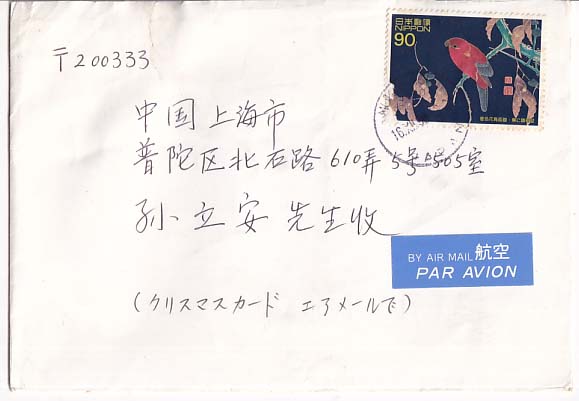 〒200333
日本郵便
NIPPON
90
中国上海市
普陀区北石路610弄5号505室
孙立安 先生收
BY AIR MAIL 航空
PAR AVION
(クリスマスカード エアメールで)